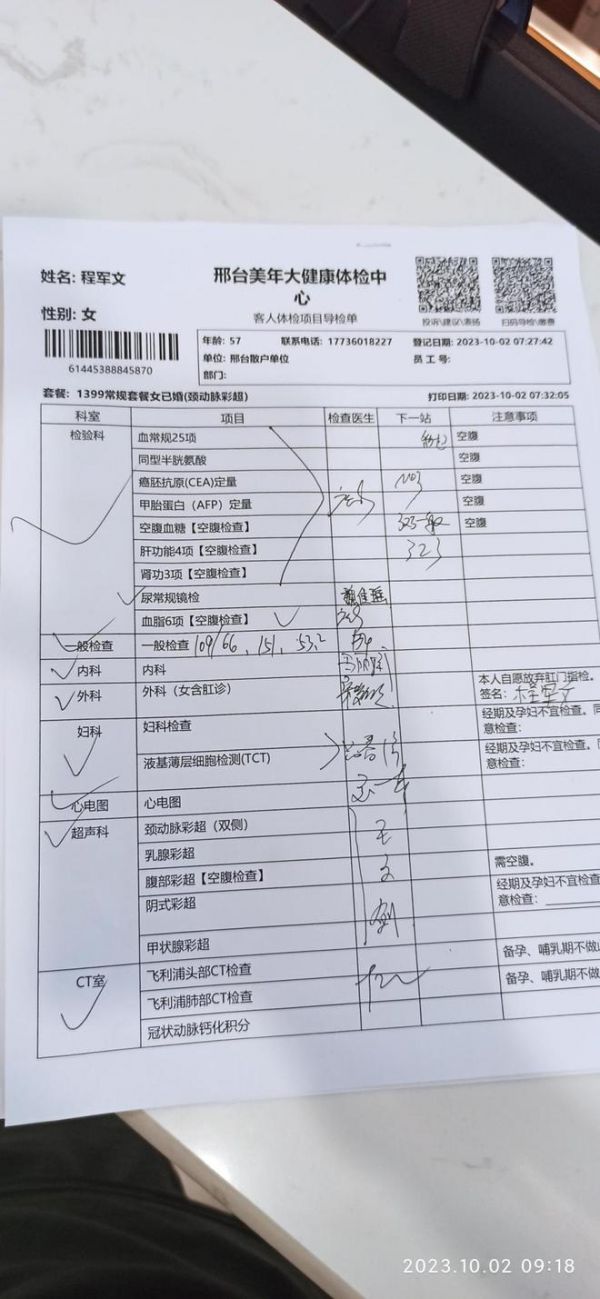 姓名: 程军文
邢台美年大健康体检中
心
性别: 女
客人体检项目导检单
投诉\建议\表扬
扫码导检\缴费
61445388845870
年龄: 57 联系电话: 17736018227 登记日期: 2023-10-02 07:27:42
单位: 邢台散户单位 员 工 号:
部门:
套餐: 1399常规套餐女已婚(颈动脉彩超) 打印日期: 2023-10-02 07:32:05
科室 项目 检查医生 下一站 注意事项
检验科 血常规25项 空腹
同型半胱氨酸 空腹
癌胚抗原(CEA)定量 空腹
甲胎蛋白（AFP）定量 空腹
空腹血糖【空腹检查】 空腹
肝功能4项【空腹检查】 323
肾功3项【空腹检查】
尿常规镜检
血脂6项【空腹检查】
一般检查 一般检查 109/66、151、53.2
内科 内科
外科 外科（女含肛诊） 本人自愿放弃肛门指检。
签名: 程军文
妇科 妇科检查 经期及孕妇不宜检查。同
意检查:
液基薄层细胞检测(TCT) 经期及孕妇不宜检查。同
意检查:
心电图 心电图
超声科 颈动脉彩超（双侧）
乳腺彩超
腹部彩超【空腹检查】 需空腹。
阴式彩超 经期及孕妇不宜检查
意检查:
甲状腺彩超
CT室 飞利浦头部CT检查 备孕、哺乳期不做
飞利浦肺部CT检查 备孕、哺乳期不做
冠状动脉钙化积分
2023.10.02 09:18